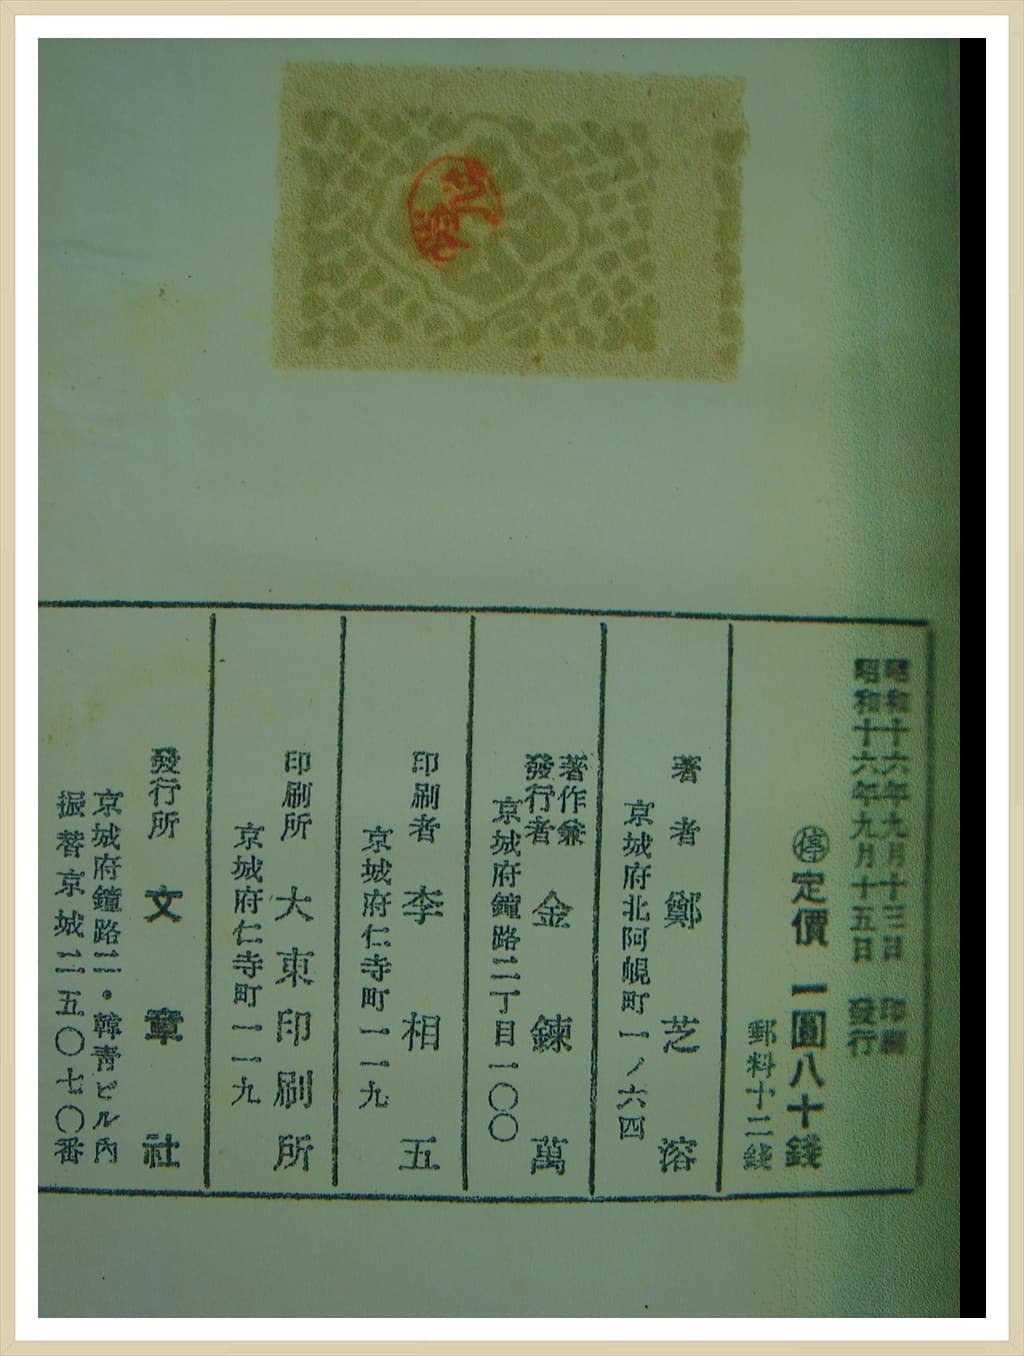 芝溶
昭和十六年九月十三日 印刷
昭和十六年九月十五日 發行
停 定價 一圓八十錢
郵料十二錢
著者 鄭芝溶
京城府北阿峴町一ノ六四
著作兼
發行者 金鍊萬
京城府鐘路二丁目一〇〇
印刷者 李相五
京城府仁寺町一一九
印刷所 大東印刷所
京城府仁寺町一一九
發行所 文章社
京城府鐘路二・韓靑ビル內
振替京城二五〇七〇番